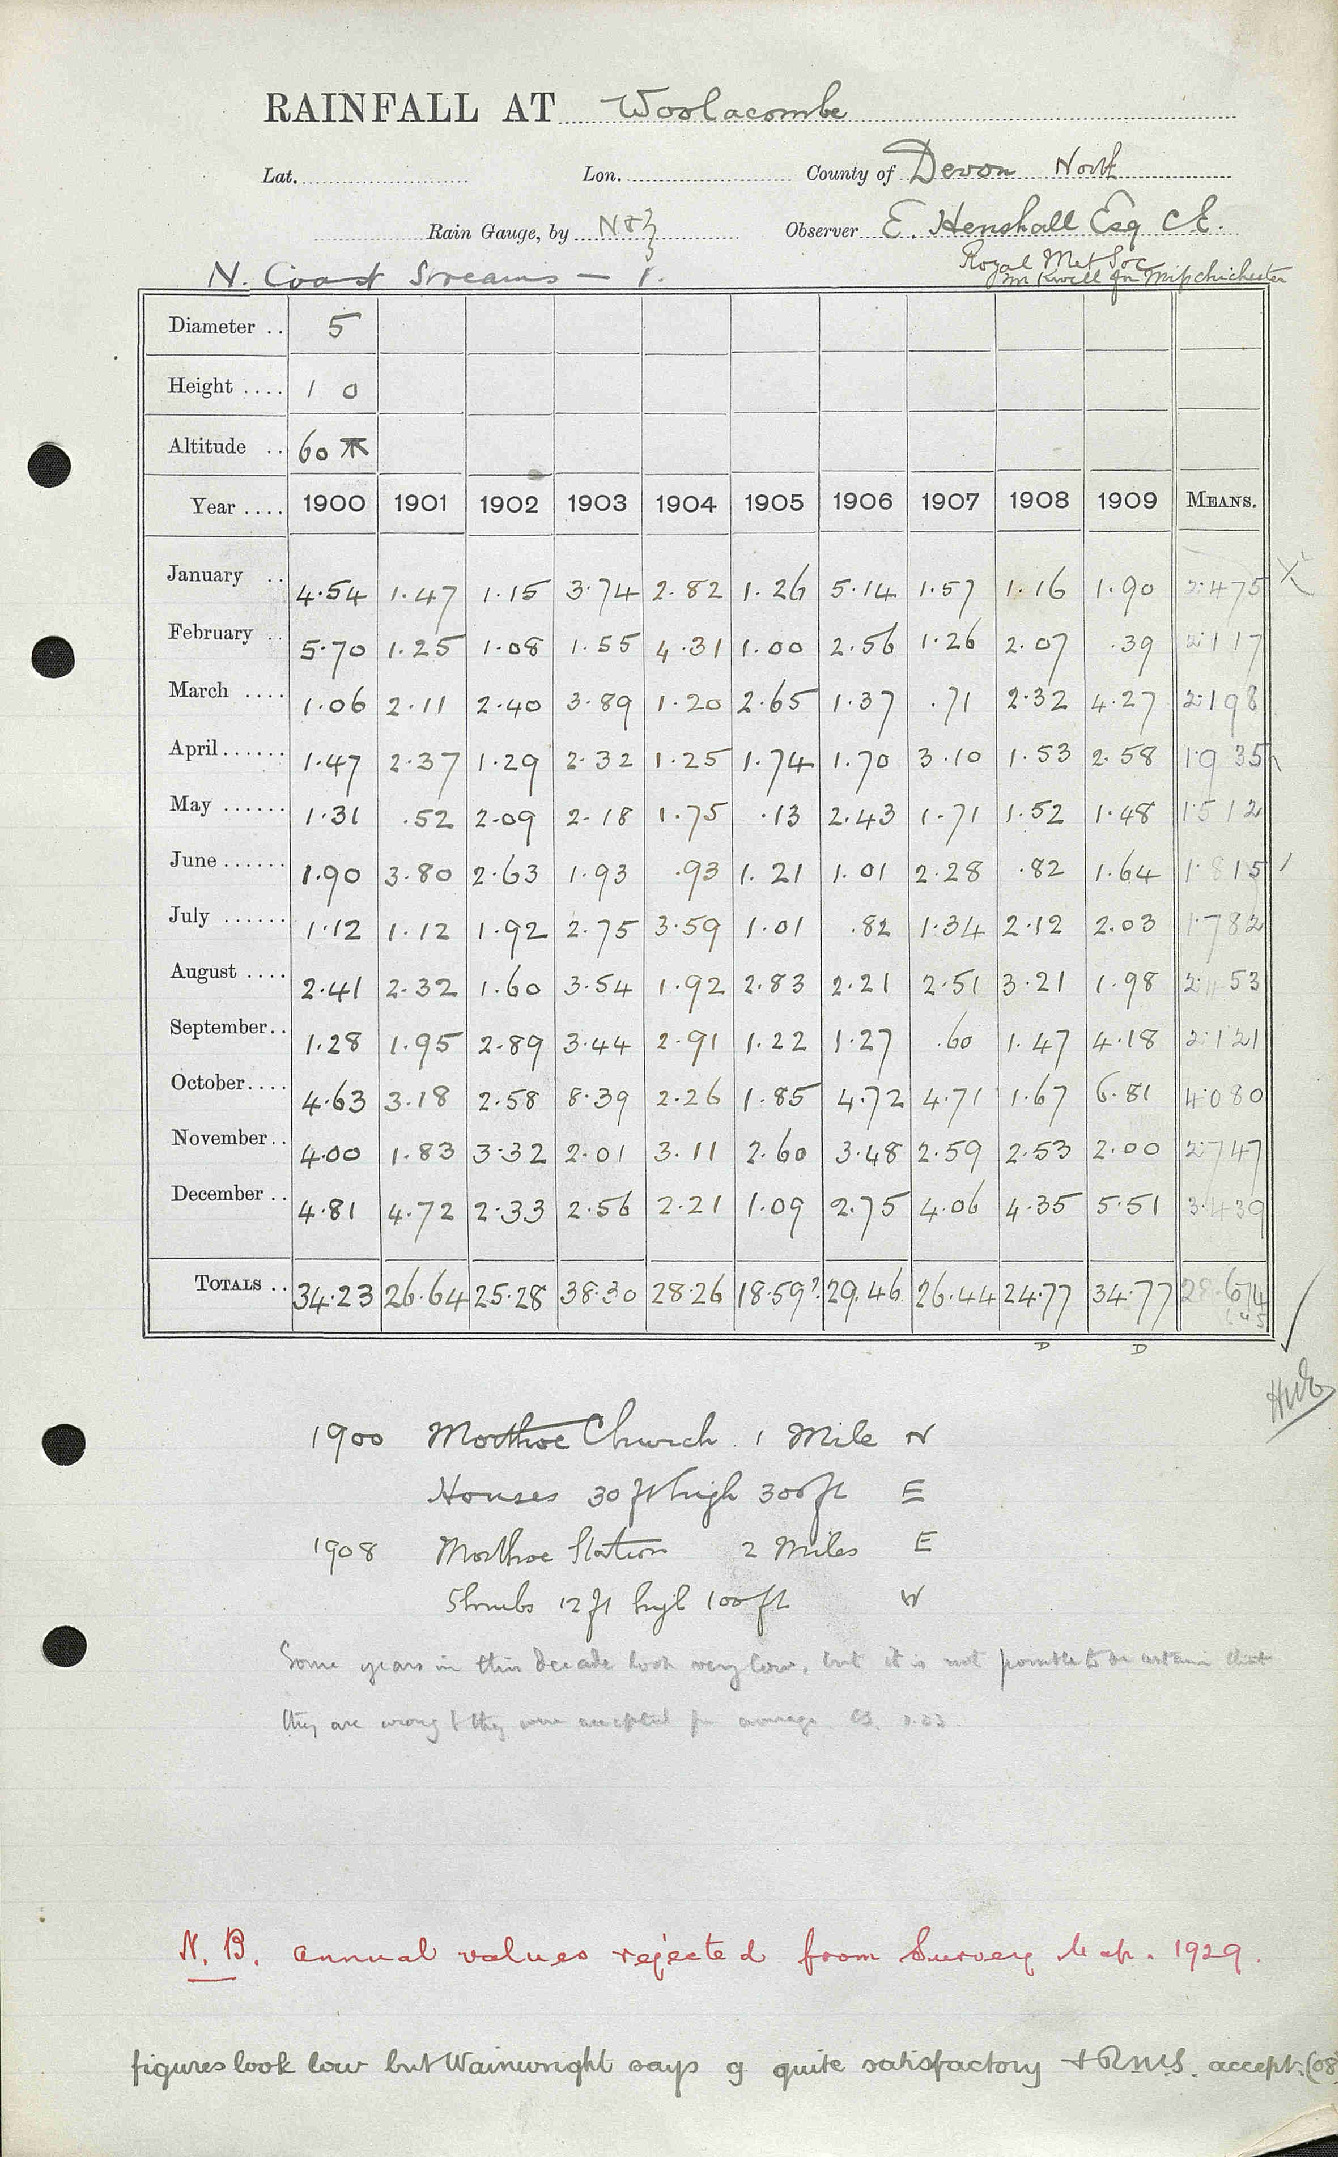 RAINFALL AT Woolacombe
Lat. Lon. County of Devon North
Rain Gauge, by N & Z Observer E. Henshall Esq C.E.
Royal Met Soc
N. Coast Streams — 1. Miss Chichester
Diameter .. 5
Height .... 1 0
Altitude .. 60
Year .... 1900 1901 1902 1903 1904 1905 1906 1907 1908 1909 MEANS.
January .. 4.54 1.47 1.15 3.74 2.82 1.26 5.14 1.57 1.16 1.90 2.475
February .. 5.70 1.25 1.08 1.55 4.31 1.00 2.56 1.26 2.07 .39 2.117
March .... 1.06 2.11 2.40 3.89 1.20 2.65 1.37 .71 2.32 4.27 2.198
April...... 1.47 2.37 1.29 2.32 1.25 1.74 1.70 3.10 1.53 2.58 1.935
May ...... 1.31 .52 2.09 2.18 1.75 .13 2.43 1.71 1.52 1.48 1.512
June ...... 1.90 3.80 2.63 1.93 .93 1.21 1.01 2.28 .82 1.64 1.815
July ...... 1.12 1.12 1.92 2.75 3.59 1.01 .82 1.34 2.12 2.03 1.782
August .... 2.41 2.32 1.60 3.54 1.92 2.83 2.21 2.51 3.21 1.98 2.453
September.. 1.28 1.95 2.89 3.44 2.91 1.22 1.27 .60 1.47 4.18 2.121
October.... 4.63 3.18 2.58 8.39 2.26 1.85 4.72 4.71 1.67 6.81 4.080
November.. 4.00 1.83 3.32 2.01 3.11 2.60 3.48 2.59 2.53 2.00 2.747
December .. 4.81 4.72 2.33 2.56 2.21 1.09 2.75 4.06 4.35 5.51 3.439
TOTALS .. 34.23 26.64 25.28 38.30 28.26 18.59? 29.46 26.44 24.77 34.77 28.674
D D
1900 Morthoe Church 1 Mile N
Houses 30 ft high 300 ft E
1908 Morthoe Station 2 Miles E
Shrubs 12 ft high 100 ft W
Some years in this decade look very low, but it is not possible to be certain that
they are wrong & they were accepted for average
N.B. annual values rejected from Survey Map. 1929.
figures look low but Wainwright says g quite satisfactory & R.M.S. accept. (08)